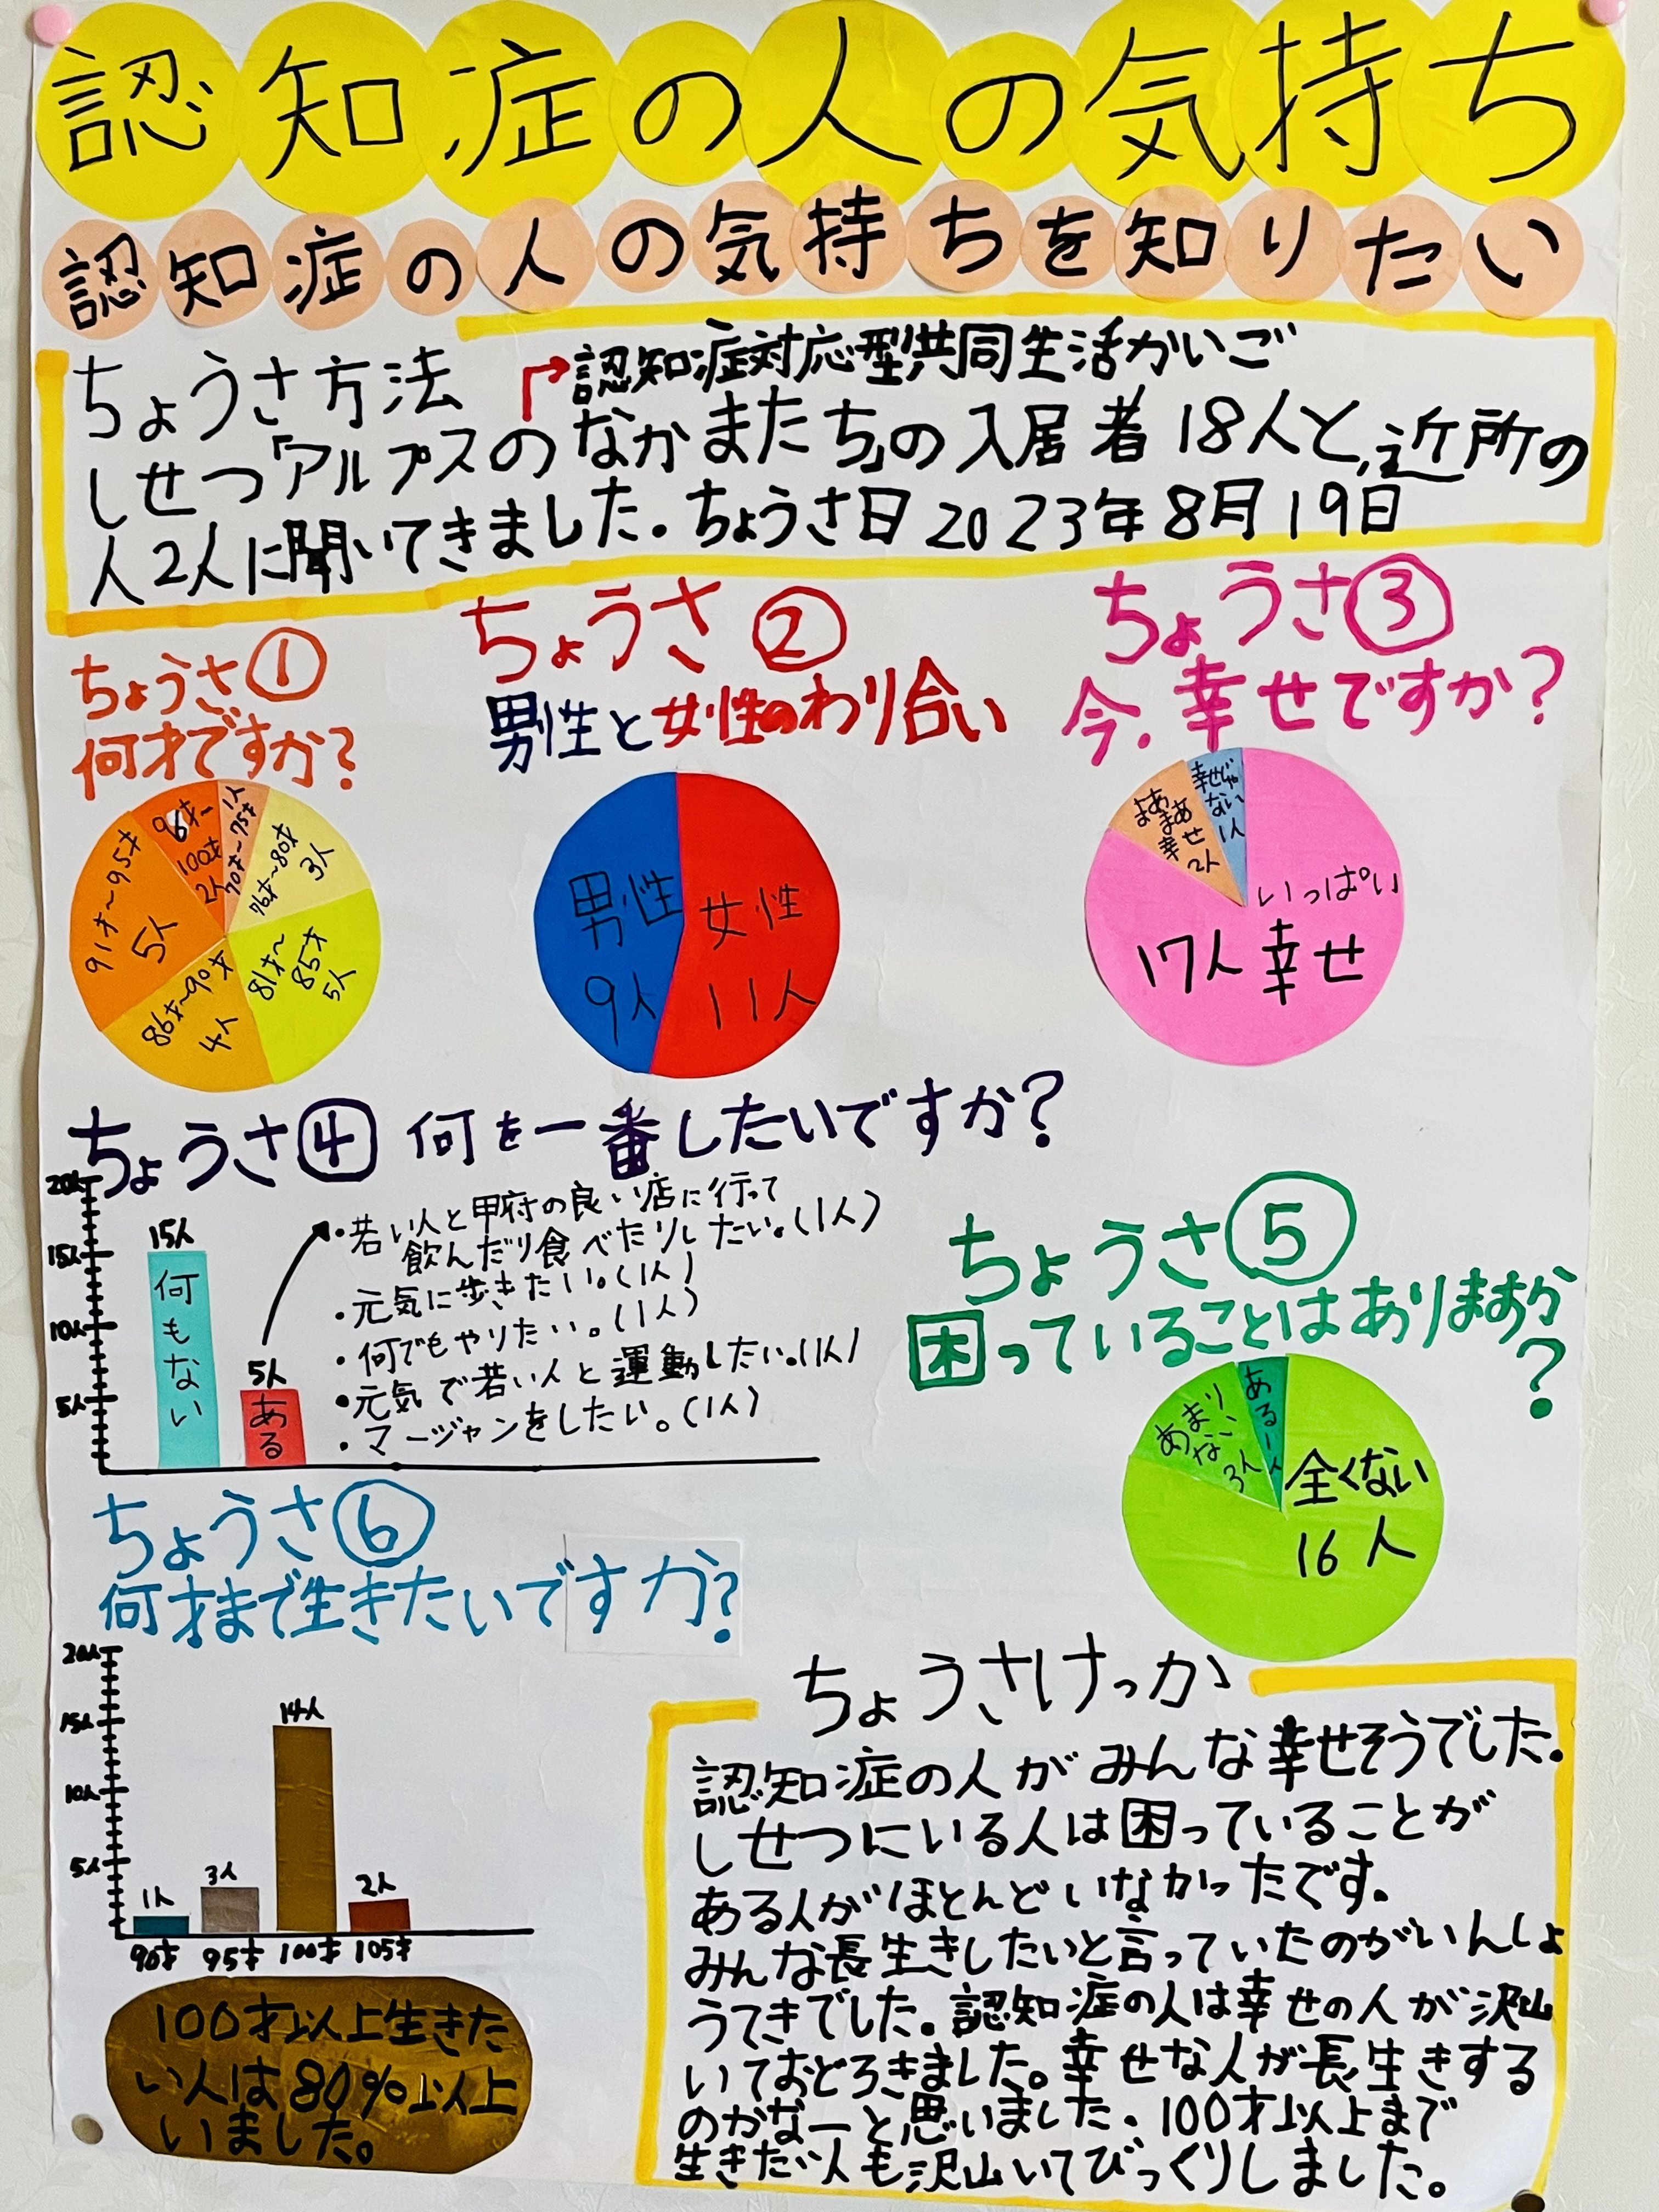 認知症の人の気持ち
認知症の人の気持ちを知りたい
ちょうさ方法
認知症対応型共同生活かいご
しせつ「アルプスのなかまたち」の入居者18人と、近所の
人2人に聞いてきました。ちょうさ日2023年8月19日
ちょうさ①
何才ですか?
1人
70才~75才
76才~80才
3人
81才~
85才
5人
86才~90才
4人
91才~95才
5人
96才~
100才
2人
ちょうさ②
男性と女性のわり合い
男性
9人
女性
11人
ちょうさ③
今、幸せですか?
幸せじゃ
ない
1人
まあ
まあ
幸せ
2人
いっぱい
17人幸せ
ちょうさ④ 何を一番したいですか?
20人
15人
10人
5人
15人
何もない
5人
ある
・若い人と甲府の良い店に行って
飲んだり食べたりしたい。(1人)
・元気に歩きたい。(1人)
・何でもやりたい。(1人)
・元気で若い人と運動したい。(1人)
・マージャンをしたい。(1人)
ちょうさ⑤
困っていることはありますか
?
ある1人
あまり
ない
3人
全くない
16人
ちょうさ⑥
何才まで生きたいですか?
20人
15人
10人
5人
1人
3人
14人
2人
90才 95才 100才 105才
100才以上生きた
い人は80%以上
いました。
ちょうさけっか
認知症の人がみんな幸せそうでした。
しせつにいる人は困っていることが
ある人がほとんどいなかったです。
みんな長生きしたいと言っていたのがいんしょ
うてきでした。認知症の人は幸せの人が沢山
いておどろきました。幸せな人が長生きする
のかなーと思いました。100才以上まで
生きたい人も沢山いてびっくりしました。